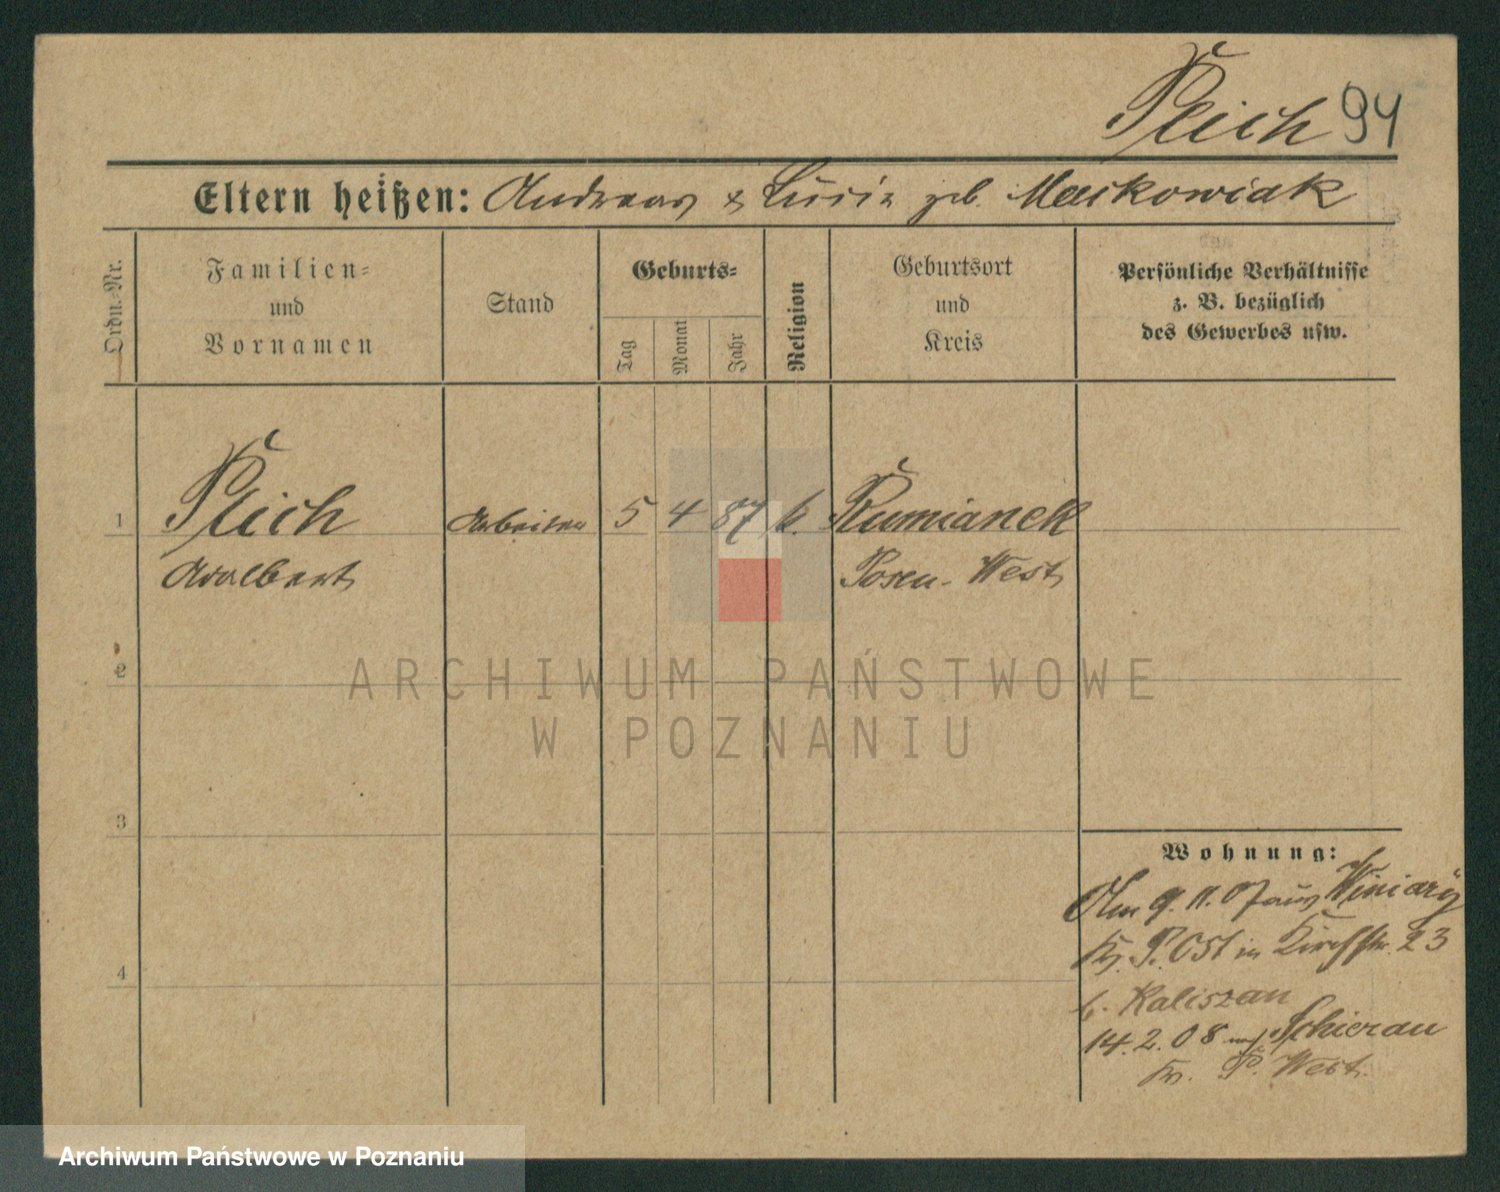 Plich 94
Eltern heißen: Andreas & Lucia geb. Maikowiak
Ordn.-Nr.
Familien-
und
Vornamen
Stand
Geburts-
Tag
Monat
Jahr
Religion
Geburtsort
und
Kreis
Persönliche Verhältnisse
z. B. bezüglich
des Gewerbes usw.
1 Plich Arbeiter 5 4 87 k. Rumianek
Adalbert Posen-West
2
ARCHIWUM PAŃSTWOWE
W POZNANIU
3
Wohnung:
9. 11. 07 aus Winiary
Kr. P. Ost in Kirchstr. 23
b. Kaliszan
4
14. 2. 08 nach Schierau
Kr. P. West.
Archiwum Państwowe w Poznaniu